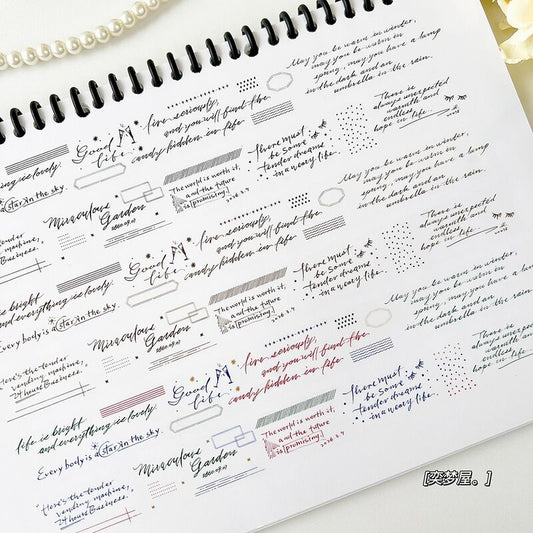 May you be warm in winter,
may you be warm in
spring, may you have a lamp
in the dark and an
umbrella in the rain.
There is
always unexpected
warmth and
endless
hope in life.
live seriously,
and you will find the
candy hidden in life
Good
life
There must
be some
tender dreams
in a weary life.
The world is worth it,
and the future
is promising.
ything is lovely.
is a star in the sky.
Miraculous
Garden
tender
machine,
Business.
May you be warm in winter,
may you be warm in
spring, may you have a lamp
in the dark and an
umbrella in the rain.
There is
always unexpected
warmth and
endless
hope in life.
live seriously,
and you will find the
candy hidden in life
Good
life
There must
be some
tender dreams
in a weary life.
The world is worth it,
and the future
is promising.
is bright
and everything is lovely.
Every body is a star in the sky.
Miraculous
Garden
Here's the tender
vending machine,
24 hours Business.
May you be warm in winter,
may you be warm in
spring, may you have a lamp
in the dark and an
umbrella in the rain.
There is
always unexpected
warmth and
endless
hope in life.
live seriously,
and you will find the
candy hidden in life
Good
life
There must
be some
tender dreams
in a weary life.
The world is worth it,
and the future
is promising.
life is bright
and everything is lovely.
Every body is a star in the sky.
Miraculous
Garden
"Here's the tender
vending machine,
24 hours Business.
[奕梦屋。]